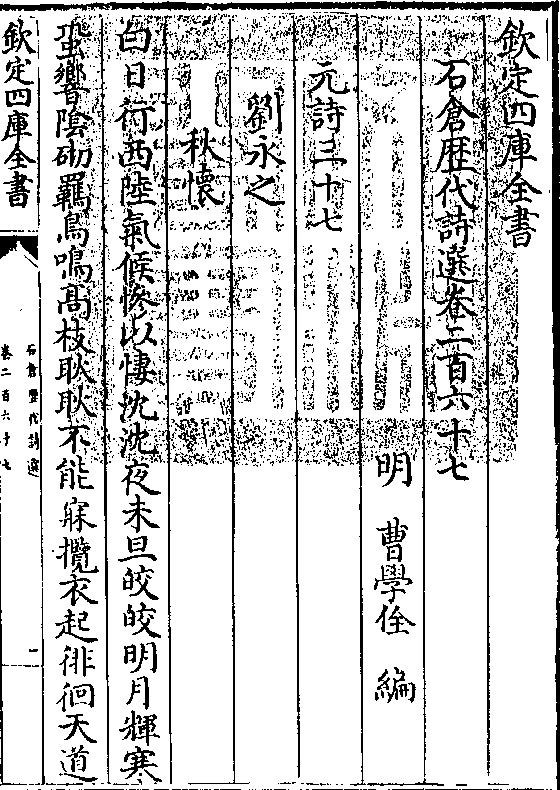 欽定四庫全書
石倉歴代詩選卷二百六十七
明 曹學佺 編
元詩三十七
劉永之
秋懷
白日行西陸氣候慘以悽沈沈夜未旦皎皎明月輝寒
蛩響陰砌羈鳥鳴高枝耿耿不能寐攬衣起徘徊天道
欽定四庫全書
石倉歷代詩選
卷二百六十七
一